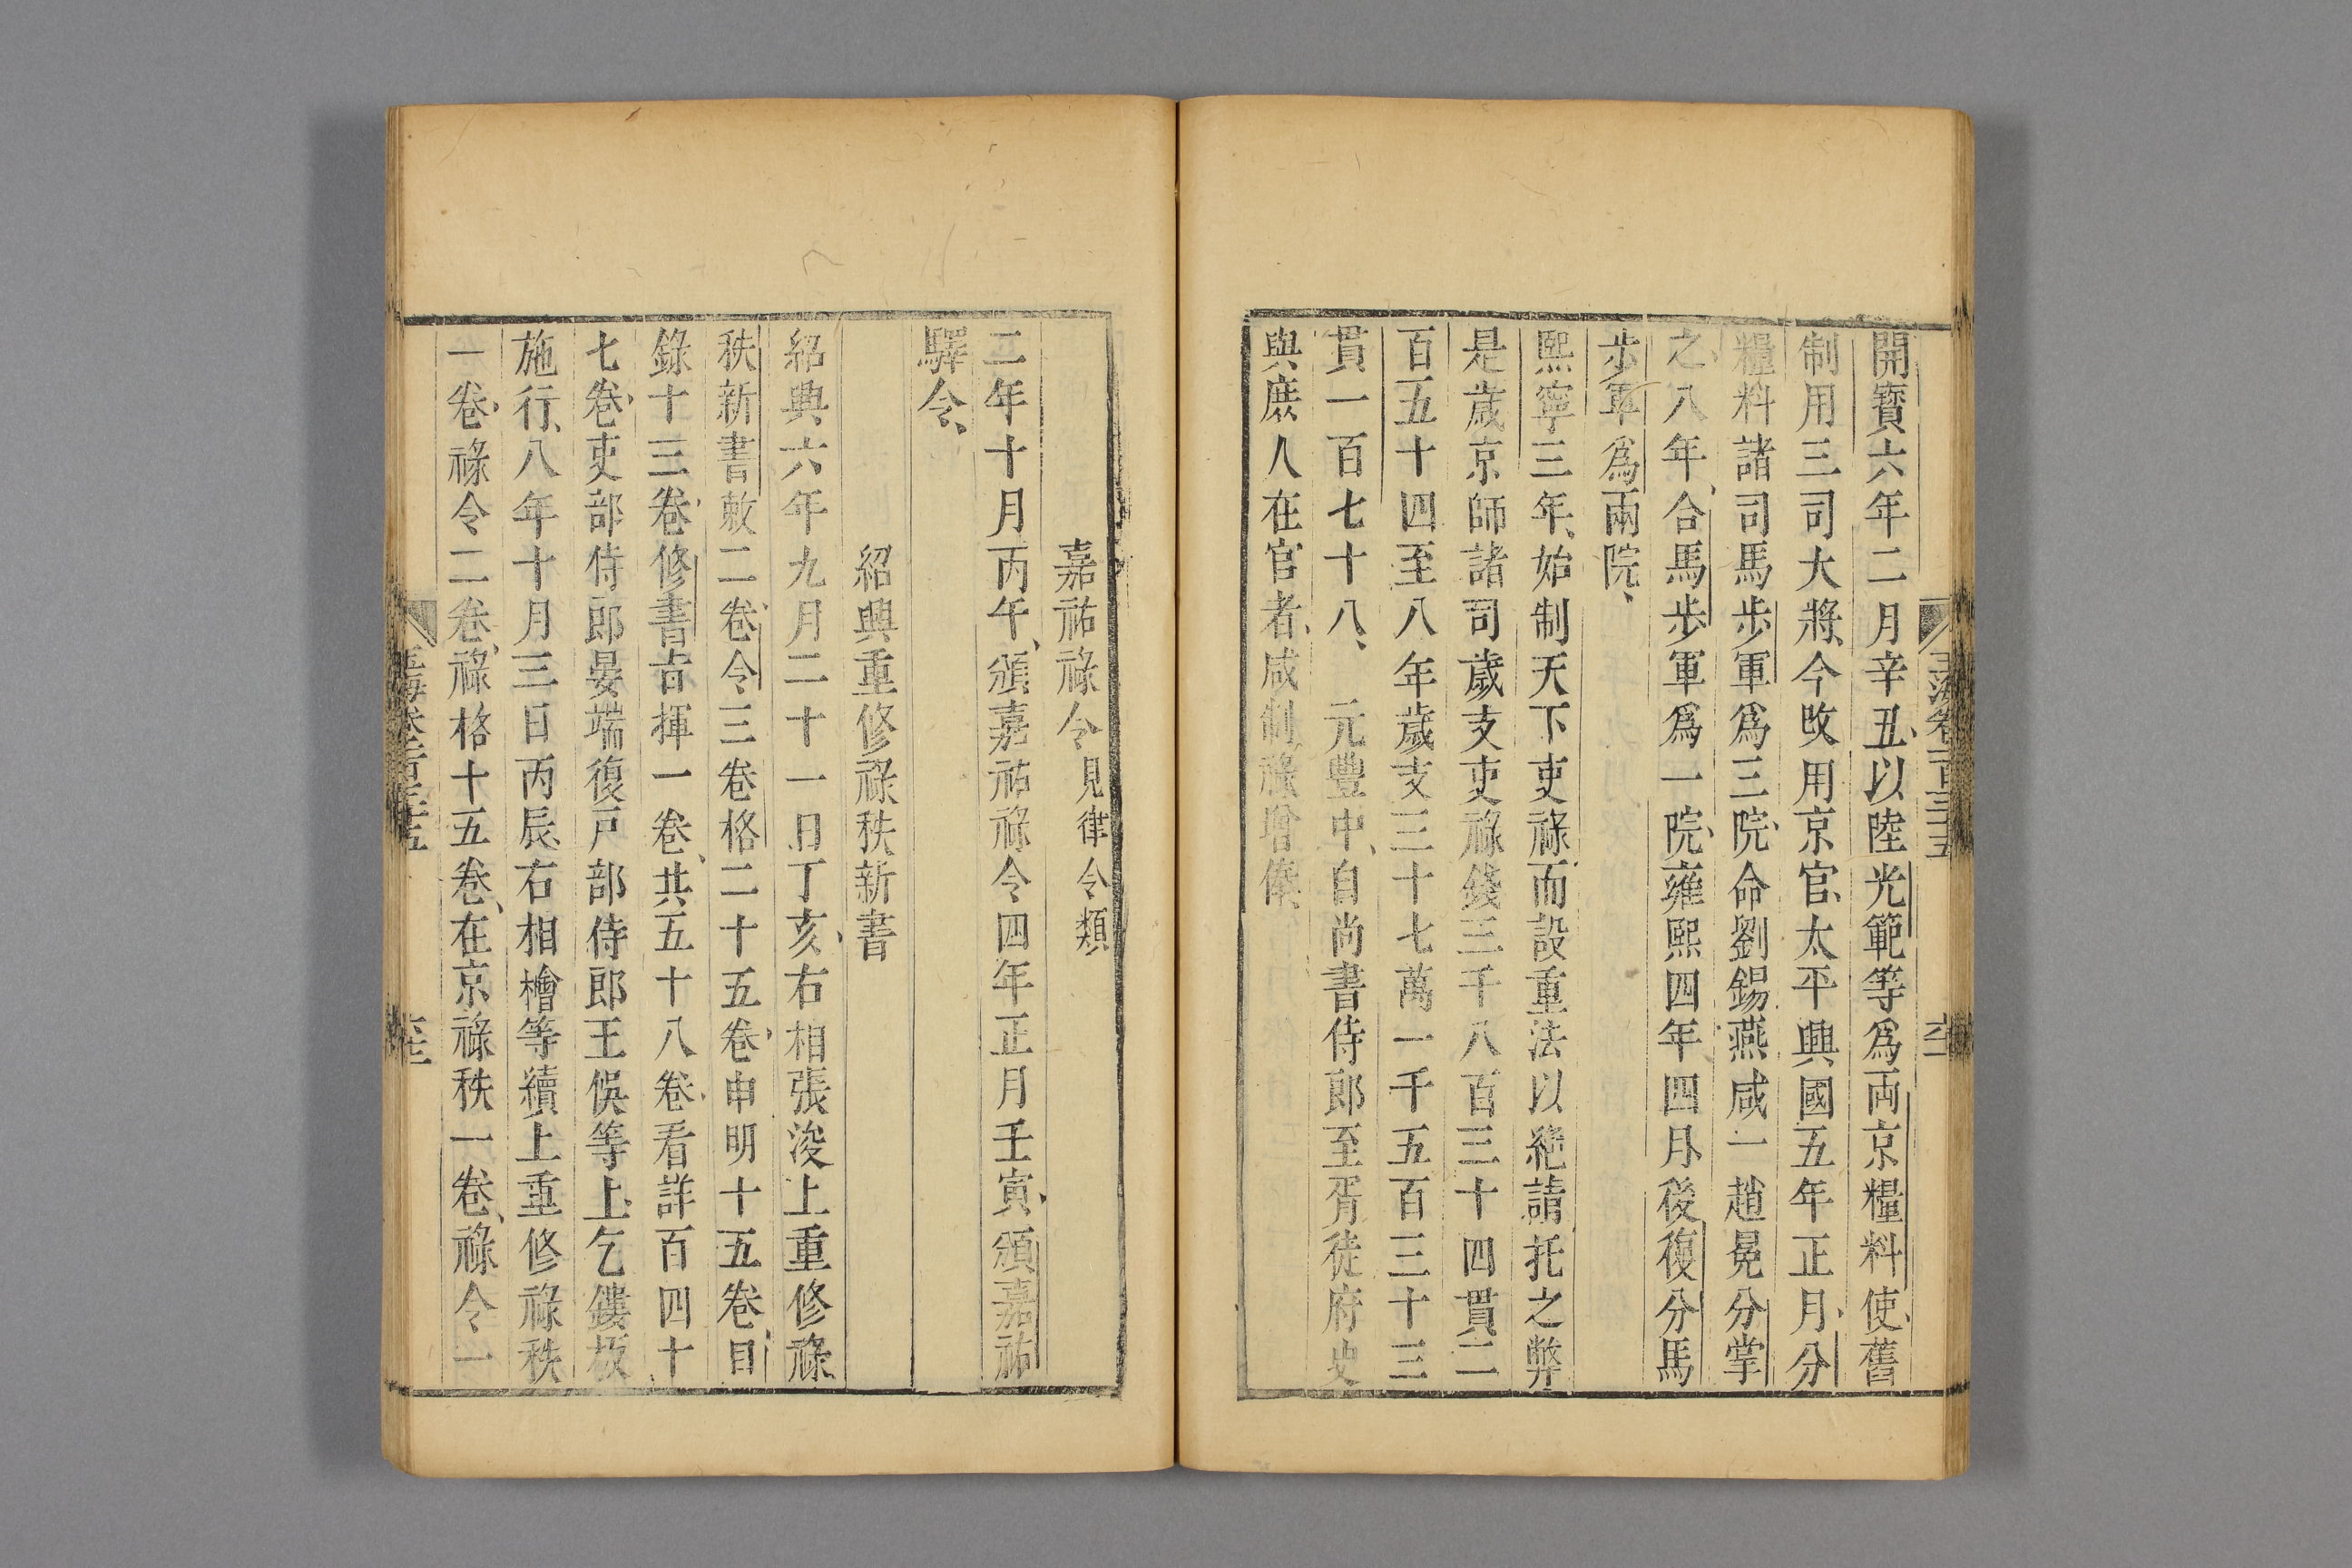 開寳六年二月辛丑、以陸光範等爲両京糧料使、舊
制用三司大將、今改用京官、太平興國五年正月、分
糧料諸司馬步軍爲三院、命劉錫燕咸一趙晃分掌
之、八年、合馬步軍爲一院、雍熙四年四月、後復分馬
步軍爲兩院、
熙寧三年、始制天下吏祿、而設重法以絶請托之弊
是歲京師諸司歲支吏祿錢三千八百三十四貫二
百五十四至八年歲支三十七萬一千五百三十三
貫一百七十八、　元豐中、自尚書侍郎至胥徒府史
與庶人在官者、咸制祿增俸、
嘉祐祿令見律令類
二年十月丙午、頒嘉祐祿令四年正月壬寅、頒嘉祐
驛令、
紹興重修祿秩新書
紹興六年九月二十一日丁亥、右相張浚上重修祿
秩新書敕二卷、令三卷格二十五卷、申明十五卷、目
錄十三卷、修書旨揮一卷、共五十八卷、看詳百四十
七卷、吏部侍郎晏端復戸部侍郎王俁等上、乞鏤板
施行、八年十月三日丙辰、右相檜等續上重修祿秩
一卷、祿令二卷、祿格十五卷、在京祿秩一卷、祿令一